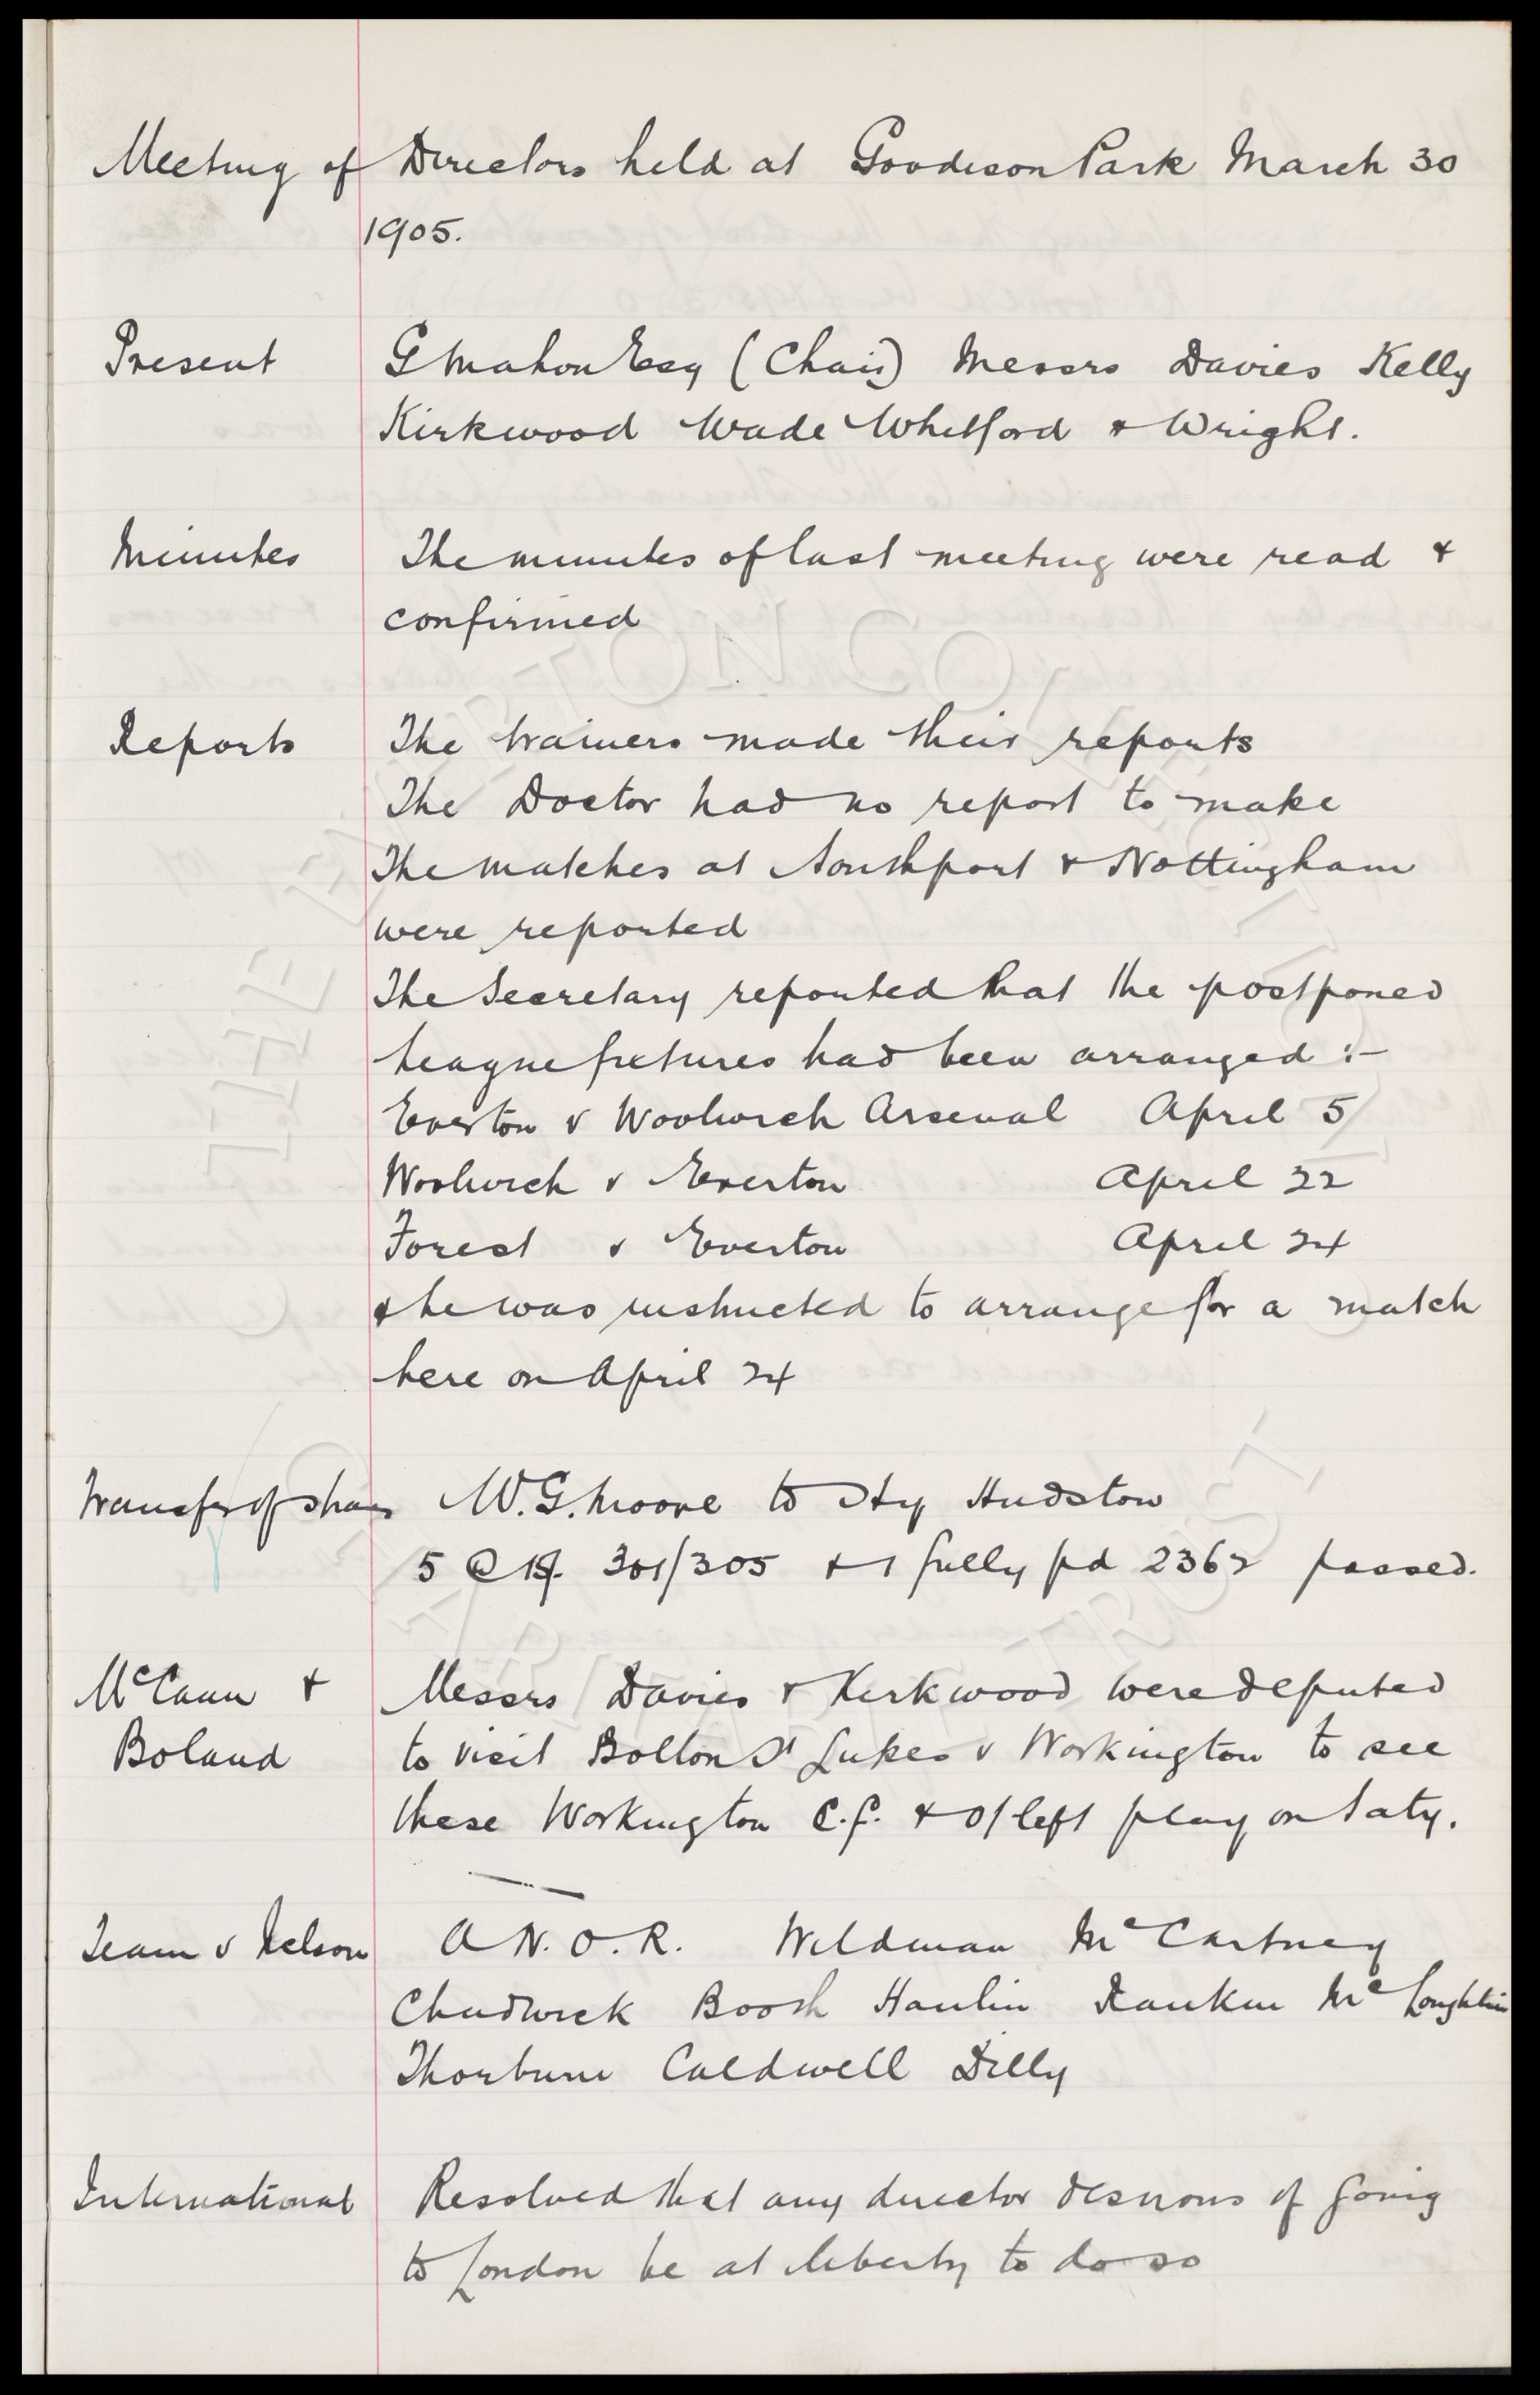 Meeting of Directors held at Goodison Park March 30
1905.
Present G Mahon Esq (Chair) Messrs Davies Kelly
Kirkwood Wade Whitford & Wright.
Minutes The minutes of last meeting were read &
confirmed
Reports The trainers made their reports
The Doctor had no report to make
The matches at Southport & Nottingham
were reported
The Secretary reported that the postponed
League fixtures had been arranged :-
Everton v Woolwich Arsenal April 5
Woolwich v Everton April 22
Forest v Everton April 24
& he was instructed to arrange for a match
here on April 24
Transfer of shares W. G. Moore to Hy Hudston
5 @ 301/305 & 1 fully pd 2362 passed.
McCann & Messrs Davies & Kirkwood were deputed
Boland to visit Bolton St Lukes v Workington to see
these Workington C.f. & O/left play on Saty.
Team v Nelson A N. O. R. Wildman McCartney
Chadwick Booth Hanlin Rankin McLoughlin
Thorburn Caldwell Dilly
International Resolved that any director desirous of going
to London be at liberty to do so